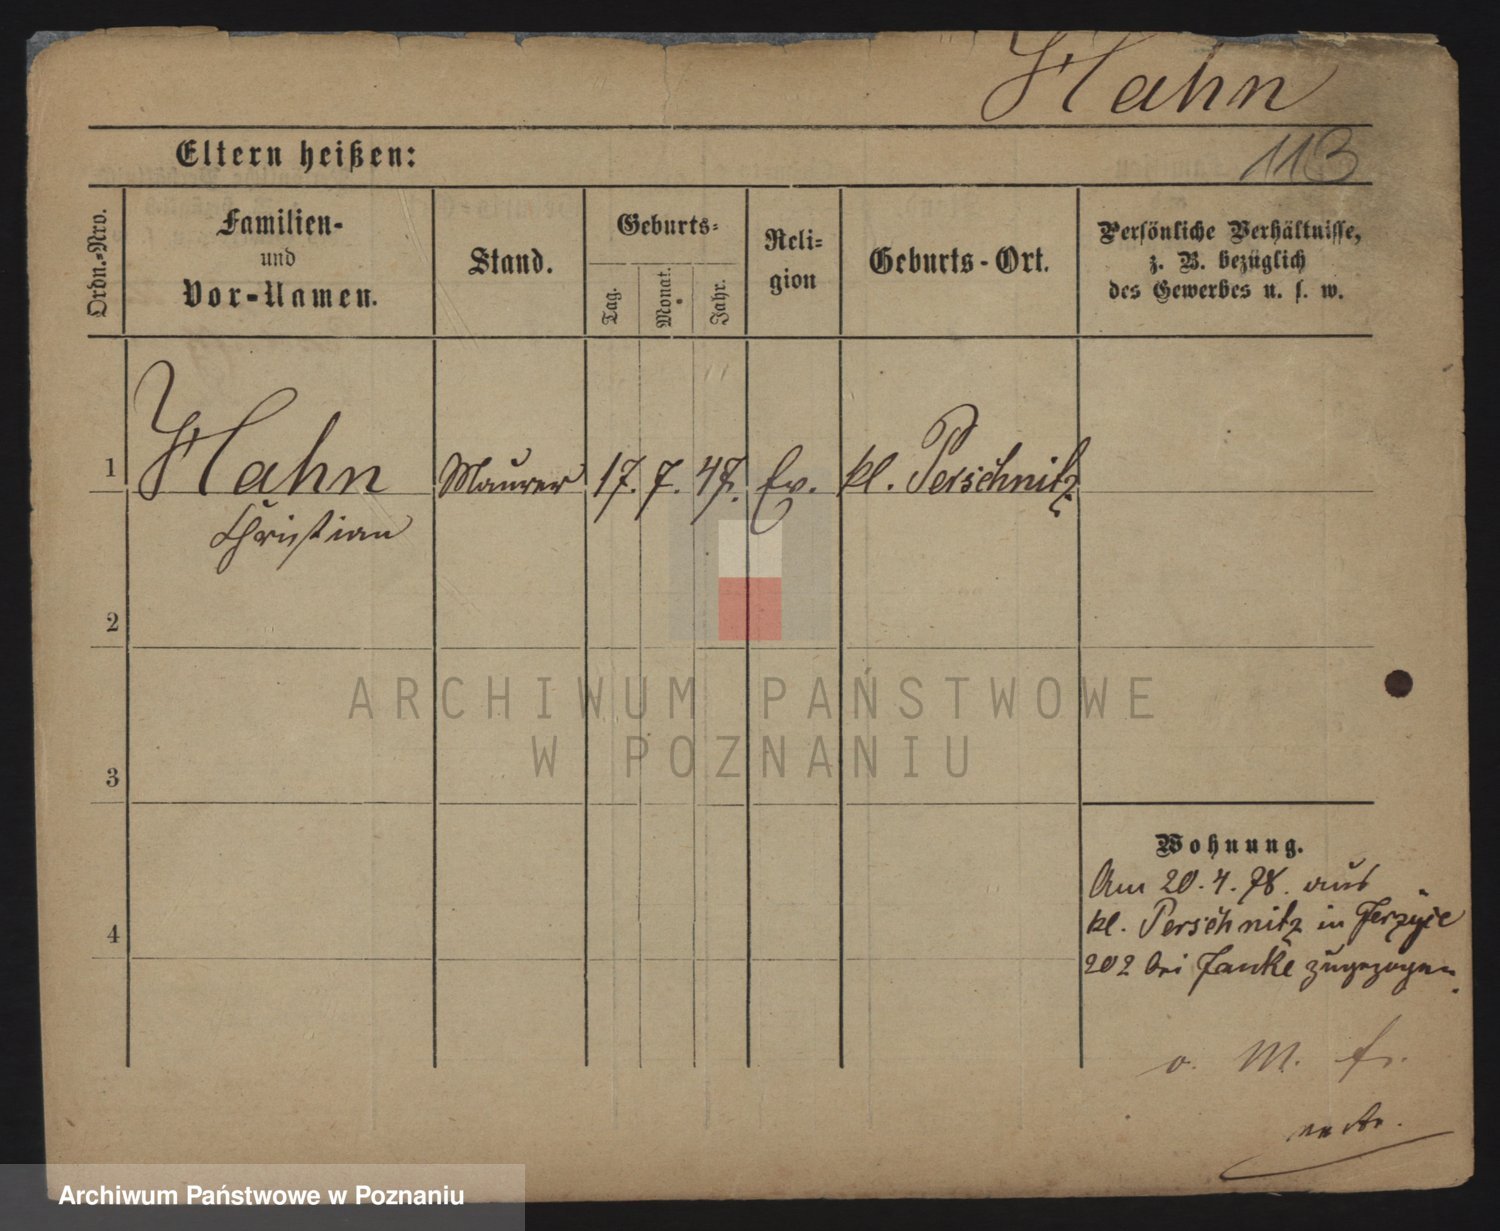 Hahn
113
Eltern heißen:
Ordn.-Nro.
Familien-
und
Vor-Namen.
Stand.
Geburts-
Tag.
Monat.
Jahr.
Reli-
gion
Geburts-Ort.
Persönliche Verhältnisse,
z. B. bezüglich
des Gewerbes u. s. w.
1 Hahn Maurer 17. 7. 47. Ev. kl. Perschnitz
Christian
2
3
4
Wohnung.
Am 20.4.78. aus
kl. Perschnitz in Jerzyce
202 bei Janke zugezogen.
v. M. f.
ARCHIWUM PAŃSTWOWE
W POZNANIU
Archiwum Państwowe w Poznaniu